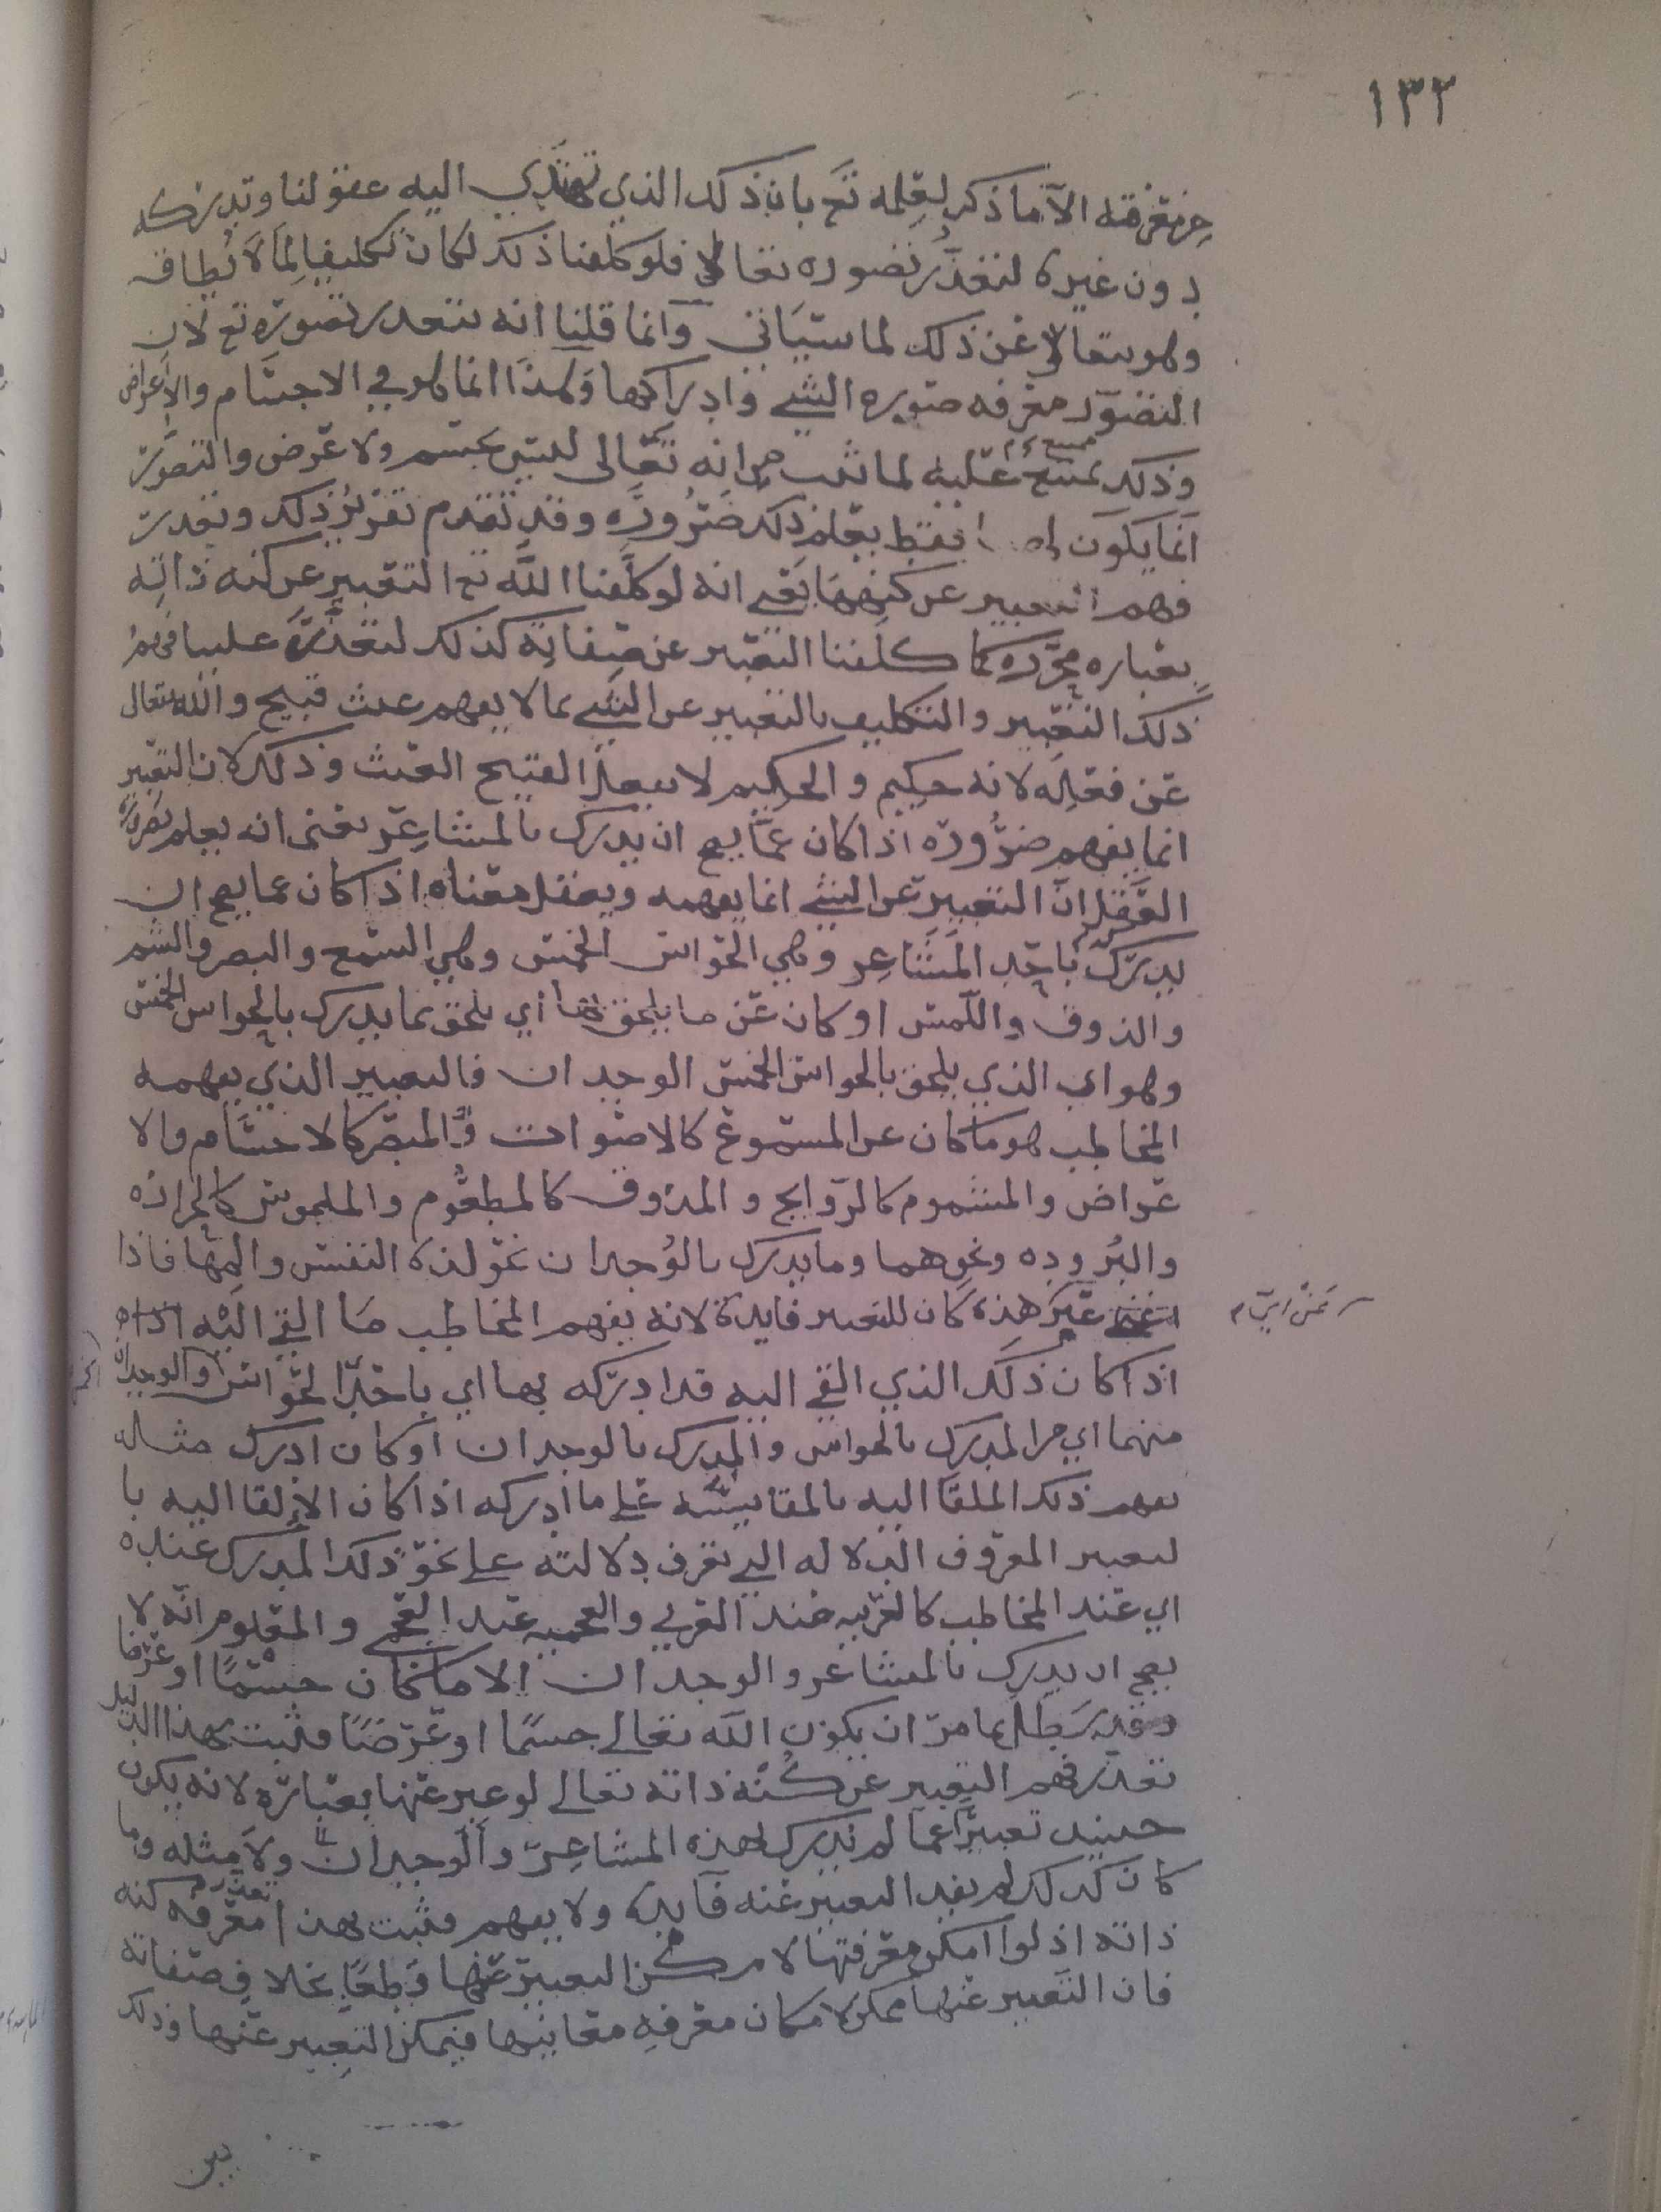 ١٣٢
من معرفته الا ما ذكر لعلمه تع بان ذلك الذي تهتدي اليه عقولنا وتدركه
دون غيره لتعذر تصوره تعالى فلو كلفنا ذلك لكان تكليفا لما لا يطاق
وهو يتعالى عن ذلك لما سياتي وانما قلنا انه يتعذر تصوره تع لان
التصور معرفه صوره الشي وادراكها وهذا انما هو في الاجسام والاعراض
وذلك يمتنع عليه لما ثبت من انه تعالى ليس بجسم ولا عرض والتصور
انما يكون لهما فقط يعلم ذلك ضروره وقد تقدم تقرير ذلك وتعذر
فهم التعبير عن كنهها يعني انه لو كلفنا الله تع التعبير عن كنه ذاته
بعباره مجرده كما كلفنا التعبير عن صفاته كذلك لتعذر علينا فهم
ذلك التعبير والتكليف بالتعبير عن الشي بما لا يفهم عبث قبيح والله يتعالى
عن فعله لانه حكيم والحكيم لا يفعل القبيح العبث وذلك لان التعبير
انما يفهم ضروره اذا كان عما يصح ان يدرك بالمشاعر يعني انه يعلم بضرورة
العقل ان التعبير عن الشي انما يفهمه ويعقل معناه اذا كان عما يصح ان
يدرك باحد المشاعر وهي الحواس الخمس وهي السمع والبصر والشم
والذوق واللمس او كان عن ما يلحق بها اي يلحق بما يدرك بالحواس الخمس
وهو اي الذي يلحق بالحواس الخمس الوجدان فالتعبير الذي يفهمه
المخاطب هو ما كان عن المسموع كالاصوات والمبصر كالاجسام والا
عراض والمشموم كالروايح والمذوق كالمطعوم والملموس كالحراره
والبروده ونحوهما وما يدرك بالوجدان نحو لذة النفس والمها فاذا
عبر هذه كان للتعبير فايدة لانه يفهم المخاطب ما القي اليه
اذا كان ذلك الذي القي اليه قد ادركه بها اي باحد الحواس او الوجدان
منهما اي من المدرك بالحواس والمدرك بالوجدان او كان ادرك مثاله
يفهم ذلك الملقا اليه بالمقايسه على ما ادركه اذا كان الالقا اليه با
لتعبير المعروف الدلاله التي تعرف دلالته على نحو ذلك المدرك عنده
اي عند المخاطب كالعربيه عند العربي والعجميه عند العجمي والمعلوم انه لا
يصح ان يدرك بالمشاعر والوجدان الا ما كان جسما او عرضا
وقد بطل بما مر ان يكون الله تعالى جسما او عرضا فثبت بهذا الدليل
تعذر فهم التعبير عن كنه ذاته تعالى لو عبر عنها بعباره لانه يكون
حينئذ تعبيرا عما لم يدرك بهذه المشاعر والوجدان ولا مثله وما
كان كذلك لم يفد التعبير عنه فايدة ولا يفهم فثبت بهذا تعذر معرفه كنه
ذاته اذ لو امكن معرفتها لامكن التعبير عنها قطعا بخلاف صفاته
فان التعبير عنها ممكن لامكان معرفه معانيها فيمكن التعبير عنها وذلك